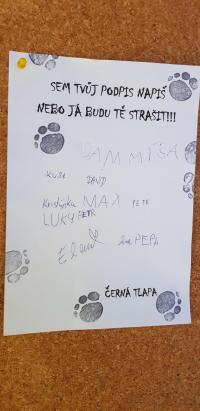 SEM TVŮJ PODPIS NAPIŠ
NEBO JÁ BUDU TĚ STRAŠIT!!!
DAVID
Kristýnka MAX PETR
LUKY PETR
PEPA
ČERNÁ TLAPA